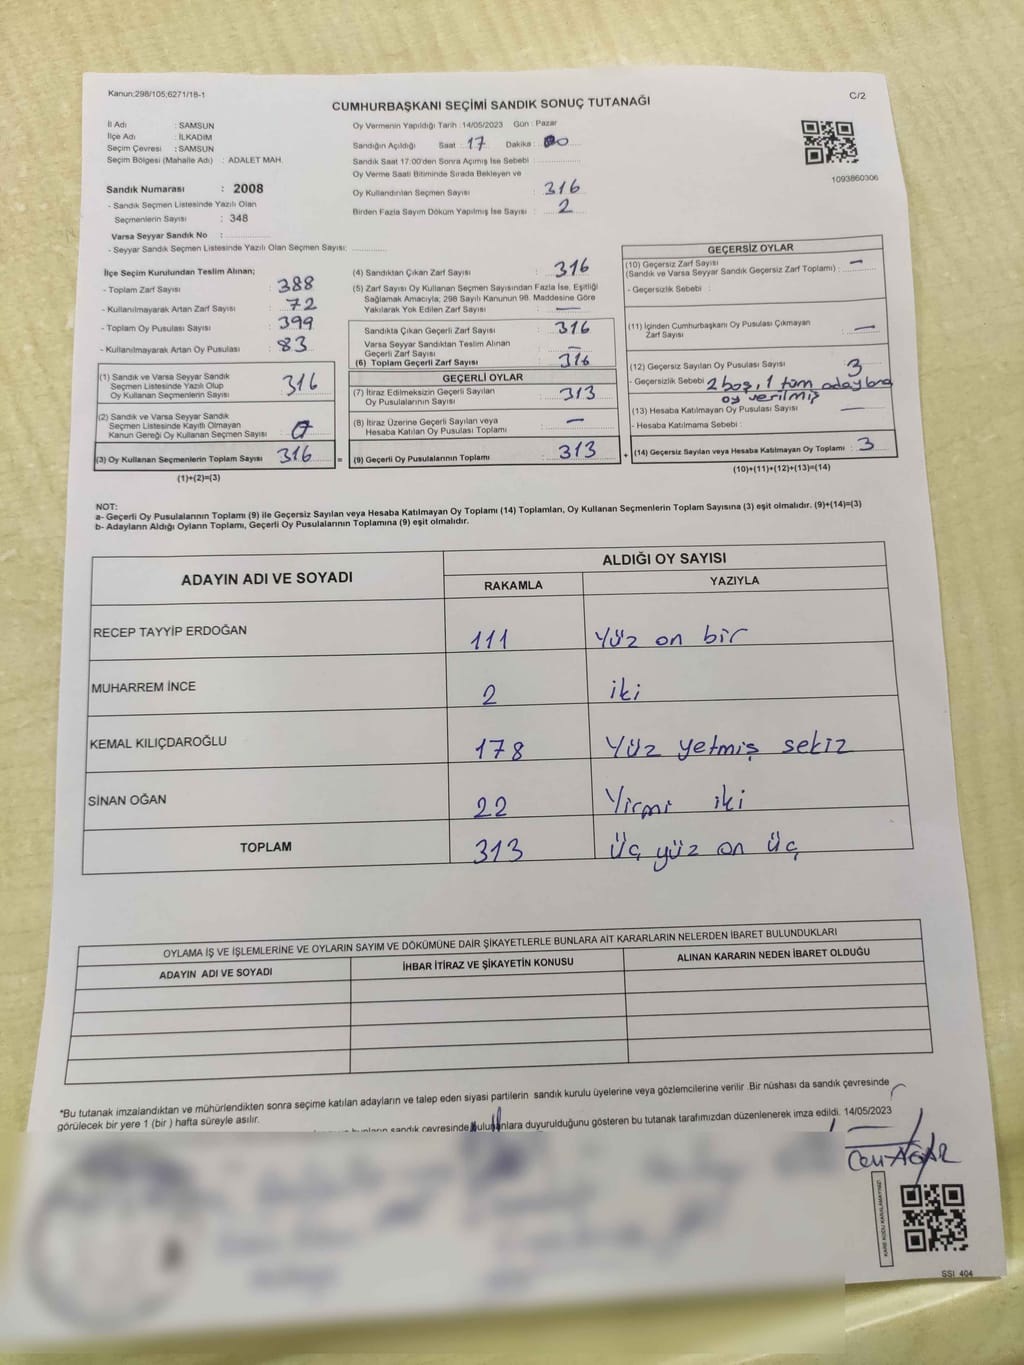 Kanun:298/105;6271/18-1
CUMHURBAŞKANI SEÇİMİ SANDIK SONUÇ TUTANAĞI
C/2
İl Adı : SAMSUN
İlçe Adı : İLKADIM
Seçim Çevresi : SAMSUN
Seçim Bölgesi (Mahalle Adı) : ADALET MAH.
Oy Vermenin Yapıldığı Tarih :14/05/2023 Gün : Pazar
Sandığın Açıldığı Saat : 17 Dakika : 00
Sandık Saat 17:00'den Sonra Açımış İse Sebebi :
Oy Verme Saati Bitiminde Sırada Bekleyen ve
Oy Kullandırılan Seçmen Sayısı : 316
Birden Fazla Sayım Döküm Yapılmış İse Sayısı : 2
1093860306
Sandık Numarası : 2008
- Sandık Seçmen Listesinde Yazılı Olan
Seçmenlerin Sayısı : 348
Varsa Seyyar Sandık No :
- Seyyar Sandık Seçmen Listesinde Yazılı Olan Seçmen Sayısı:
İlçe Seçim Kurulundan Teslim Alınan;
- Toplam Zarf Sayısı : 388
- Kullanılmayarak Artan Zarf Sayısı : 72
- Toplam Oy Pusulası Sayısı : 399
- Kullanılmayarak Artan Oy Pusulası : 83
(1) Sandık ve Varsa Seyyar Sandık
Seçmen Listesinde Yazılı Olup
Oy Kullanan Seçmenlerin Sayısı : 316
(2) Sandık ve Varsa Seyyar Sandık
Seçmen Listesinde Kayıtlı Olmayan
Kanun Gereği Oy Kullanan Seçmen Sayısı : 0
(3) Oy Kullanan Seçmenlerin Toplam Sayısı : 316
(1)+(2)=(3)
(4) Sandıktan Çıkan Zarf Sayısı : 316
(5) Zarf Sayısı Oy Kullanan Seçmen Sayısından Fazla İse, Eşitliği
Sağlamak Amacıyla; 298 Sayılı Kanunun 98. Maddesine Göre
Yakılarak Yok Edilen Zarf Sayısı : —
Sandıkta Çıkan Geçerli Zarf Sayısı : 316
Varsa Seyyar Sandıktan Teslim Alınan
Geçerli Zarf Sayısı : —
(6) Toplam Geçerli Zarf Sayısı : 316
GEÇERLİ OYLAR
(7) İtiraz Edilmeksizin Geçerli Sayılan
Oy Pusulalarının Sayısı : 313
(8) İtiraz Üzerine Geçerli Sayılan veya
Hesaba Katılan Oy Pusulası Toplamı : —
= (9) Geçerli Oy Pusulalarının Toplamı : 313
GEÇERSİZ OYLAR
(10) Geçersiz Zarf Sayısı : —
(Sandık ve Varsa Seyyar Sandık Geçersiz Zarf Toplamı)
- Geçersizlik Sebebi :
(11) İçinden Cumhurbaşkanı Oy Pusulası Çıkmayan
Zarf Sayısı : —
(12) Geçersiz Sayılan Oy Pusulası Sayısı : 3
- Geçersizlik Sebebi : 2 boş, 1 tüm adaylara
oy verilmiş
(13) Hesaba Katılmayan Oy Pusulası Sayısı : —
- Hesaba Katılmama Sebebi :
+ (14) Geçersiz Sayılan veya Hesaba Katılmayan Oy Toplamı : 3
(10)+(11)+(12)+(13)=(14)
NOT:
a- Geçerli Oy Pusulalarının Toplamı (9) ile Geçersiz Sayılan veya Hesaba Katılmayan Oy Toplamı (14) Toplamları, Oy Kullanan Seçmenlerin Toplam Sayısına (3) eşit olmalıdır. (9)+(14)=(3)
b- Adayların Aldığı Oyların Toplamı, Geçerli Oy Pusulalarının Toplamına (9) eşit olmalıdır.
ADAYIN ADI VE SOYADI
ALDIĞI OY SAYISI
RAKAMLA YAZIYLA
RECEP TAYYİP ERDOĞAN 111 Yüz on bir
MUHARREM İNCE 2 iki
KEMAL KILIÇDAROĞLU 178 Yüz yetmiş sekiz
SİNAN OĞAN 22 Yirmi iki
TOPLAM 313 Üç yüz on üç
OYLAMA İŞ VE İŞLEMLERİNE VE OYLARIN SAYIM VE DÖKÜMÜNE DAİR ŞİKAYETLERLE BUNLARA AİT KARARLARIN NELERDEN İBARET BULUNDUKLARI
ADAYIN ADI VE SOYADI İHBAR İTİRAZ VE ŞİKAYETİN KONUSU ALINAN KARARIN NEDEN İBARET OLDUĞU
*Bu tutanak imzalandıktan ve mühürlendikten sonra seçime katılan adayların ve talep eden siyasi partilerin sandık kurulu üyelerine veya gözlemcilerine verilir .Bir nüshası da sandık çevresinde
görülecek bir yere 1 (bir ) hafta süreyle asılır.
sandık çevresinde bulunanlara duyurulduğunu gösteren bu tutanak tarafımızdan düzenlenerek imza edildi. 14/05/2023
Cem AĞAR
KARE KODU KARALAMAYINIZ!
SSI 404